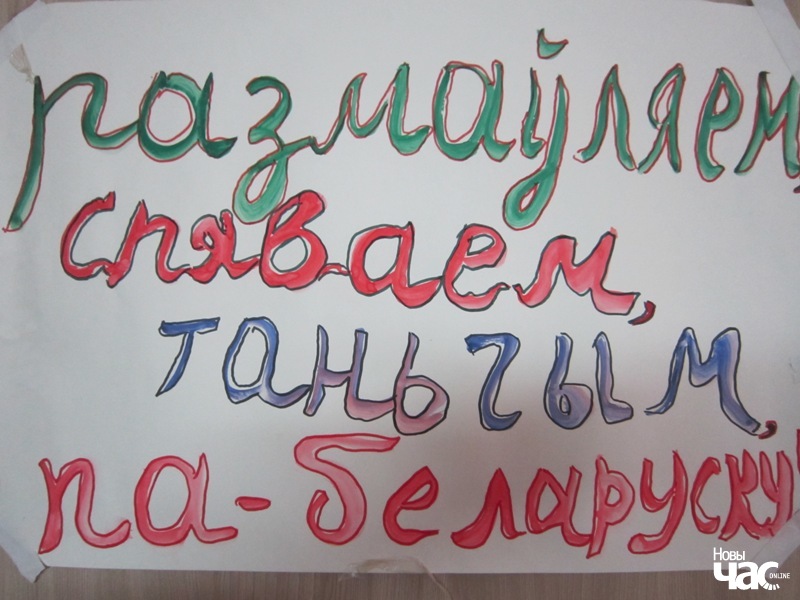 размаўляем,
спяваем,
таньчым,
па-беларуску!
Новы
Час
ONLINE